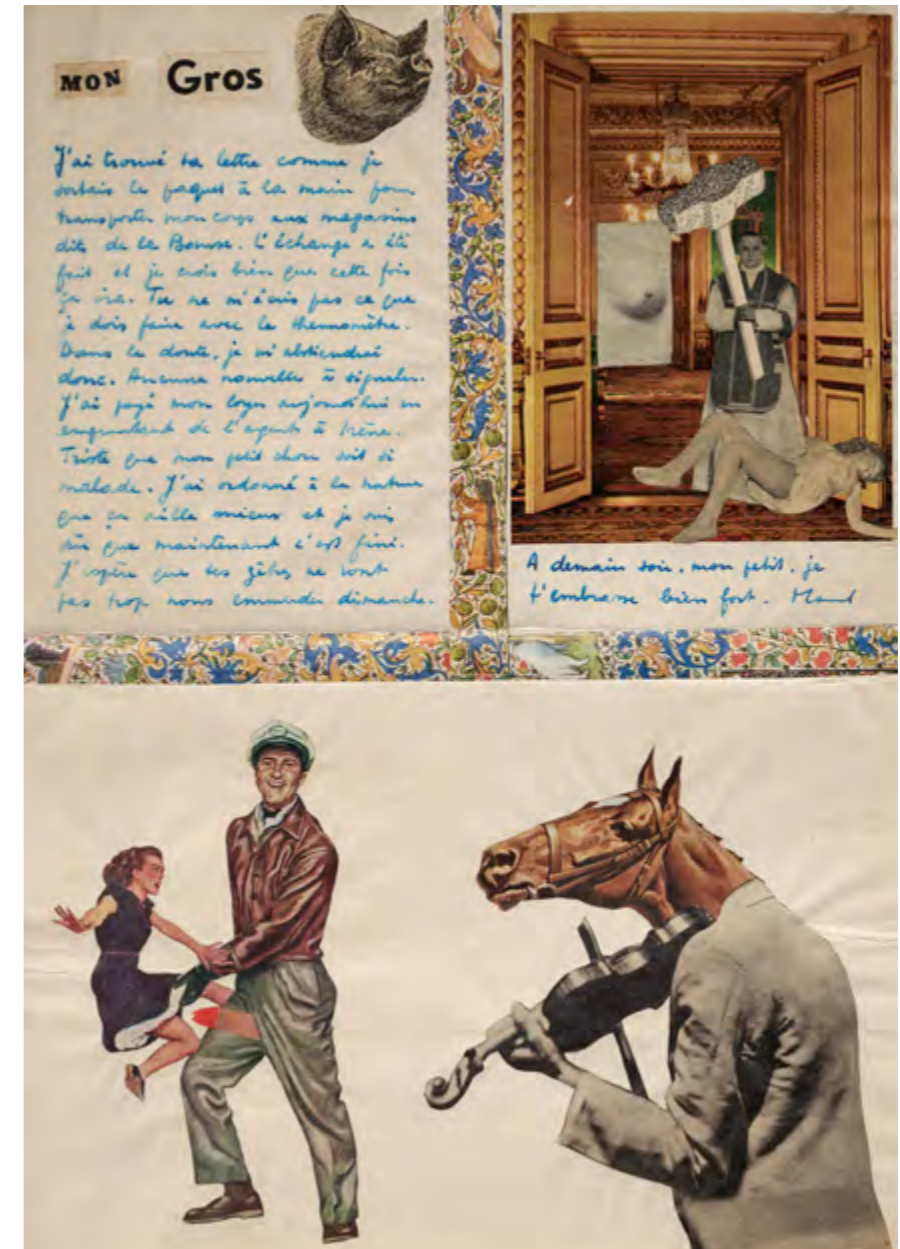 MON Gros
J'ai trouvé ta lettre comme je
sortais le paquet à la main pour
transporter mon corps aux magasins
dits de la Bourse. L'échange a été
fait et je crois bien que cette fois
ça ira. Tu ne m'écris pas ce que
je dois faire avec le thermomètre.
Dans le doute, je m'abstiendrai
donc. Aucune nouvelle à signaler.
J'ai payé mon loyer aujourd'hui en
empruntant de l'argent à Irène.
Triste que mon petit chou soit si
malade. J'ai ordonné à la nature
que ça aille mieux et je suis
sûr que maintenant c'est fini.
J'espère que tes gîtes ne vont
pas trop nous emmerder dimanche.
A demain soir, mon petit, je
t'embrasse bien fort.